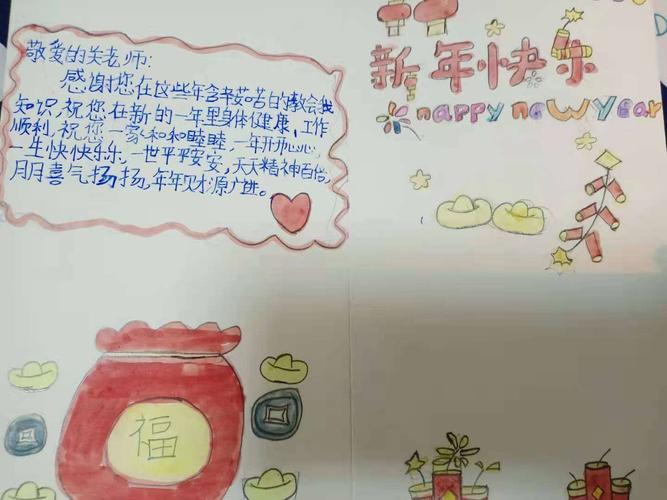 敬爱的关老师:
感谢您在这些年含辛茹苦的教会我
知识,祝您在新的一年里身体健康,工作
顺利,祝您一家和和睦睦,一年开开心心,
一生快快乐乐,一世平平安安,天天精神百倍,
月月喜气扬扬,年年财源广进。
新年快乐
happy new Year
福